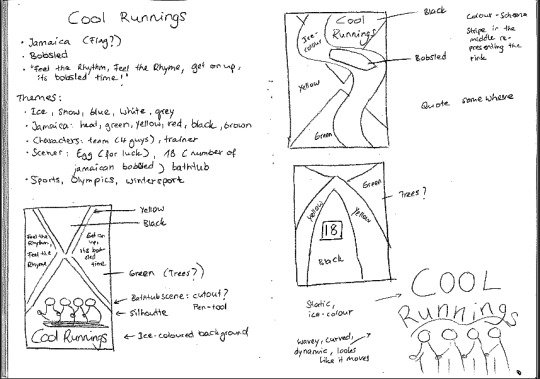 Cool Runnings
• Jamaica (Flag?)
• Bobsled
• "Feel the Rhythm, Feel the Rhyme, get on up,
its bobsled time!"
Themes:
• Ice, snow, blue, white, grey
• Jamaica: heat, green, yellow, red, black, brown
• Characters: team (4 guys), trainer
• Scenes: Egg (for luck), 18 (number of
jamaican bobsled) bathtub
• Sports, Olympics, wintersport
Yellow
Black
Feel the
Rhythm,
Feel the
Rhyme
Get on
up,
its bob-
sled
time
Green (Trees?)
Bathtubscene: cutout?
Pen-tool
Silhoutte
Cool Runnings
Ice-coloured background
Cool
Runnings
Ice-
colour
Yellow
Green
Black
Bobsled
Colour-Scheme
Stripe in the
middle re-
presenting the
rink
Quote somewhere
Green
Trees?
Yellow
Yellow
18
Black
Static,
ice-colour
COOL
Runnings
Wavey, curved,
dynamic, looks
like it moves